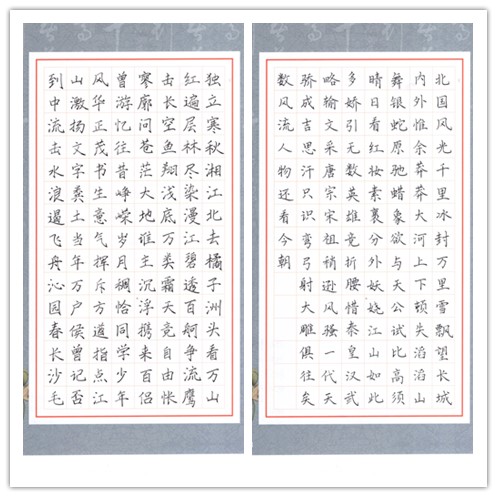 独立寒秋湘江北去橘子洲头看万山
红遍层林尽染漫江碧透百舸争流鹰
击长空鱼翔浅底万类霜天竞自由怅
寒廓问苍茫大地谁主沉浮携来百侣
曾游忆往昔峥嵘岁月稠恰同学少年
风华正茂书生意气挥斥方遒指点江
山激扬文字粪土当年万户侯曾记否
到中流击水浪遏飞舟沁园春长沙毛
北国风光千里冰封万里雪飘望长城
内外惟余莽莽大河上下顿失滔滔山
舞银蛇原驰蜡象欲与天公试比高须
晴日看红妆素裹分外妖娆江山如此
多娇引无数英雄竞折腰惜秦皇汉武
略输文采唐宗宋祖稍逊风骚一代天
骄成吉思汗只识弯弓射大雕俱往矣
数风流人物还看今朝